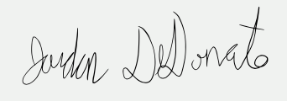 Jordan DeDonato